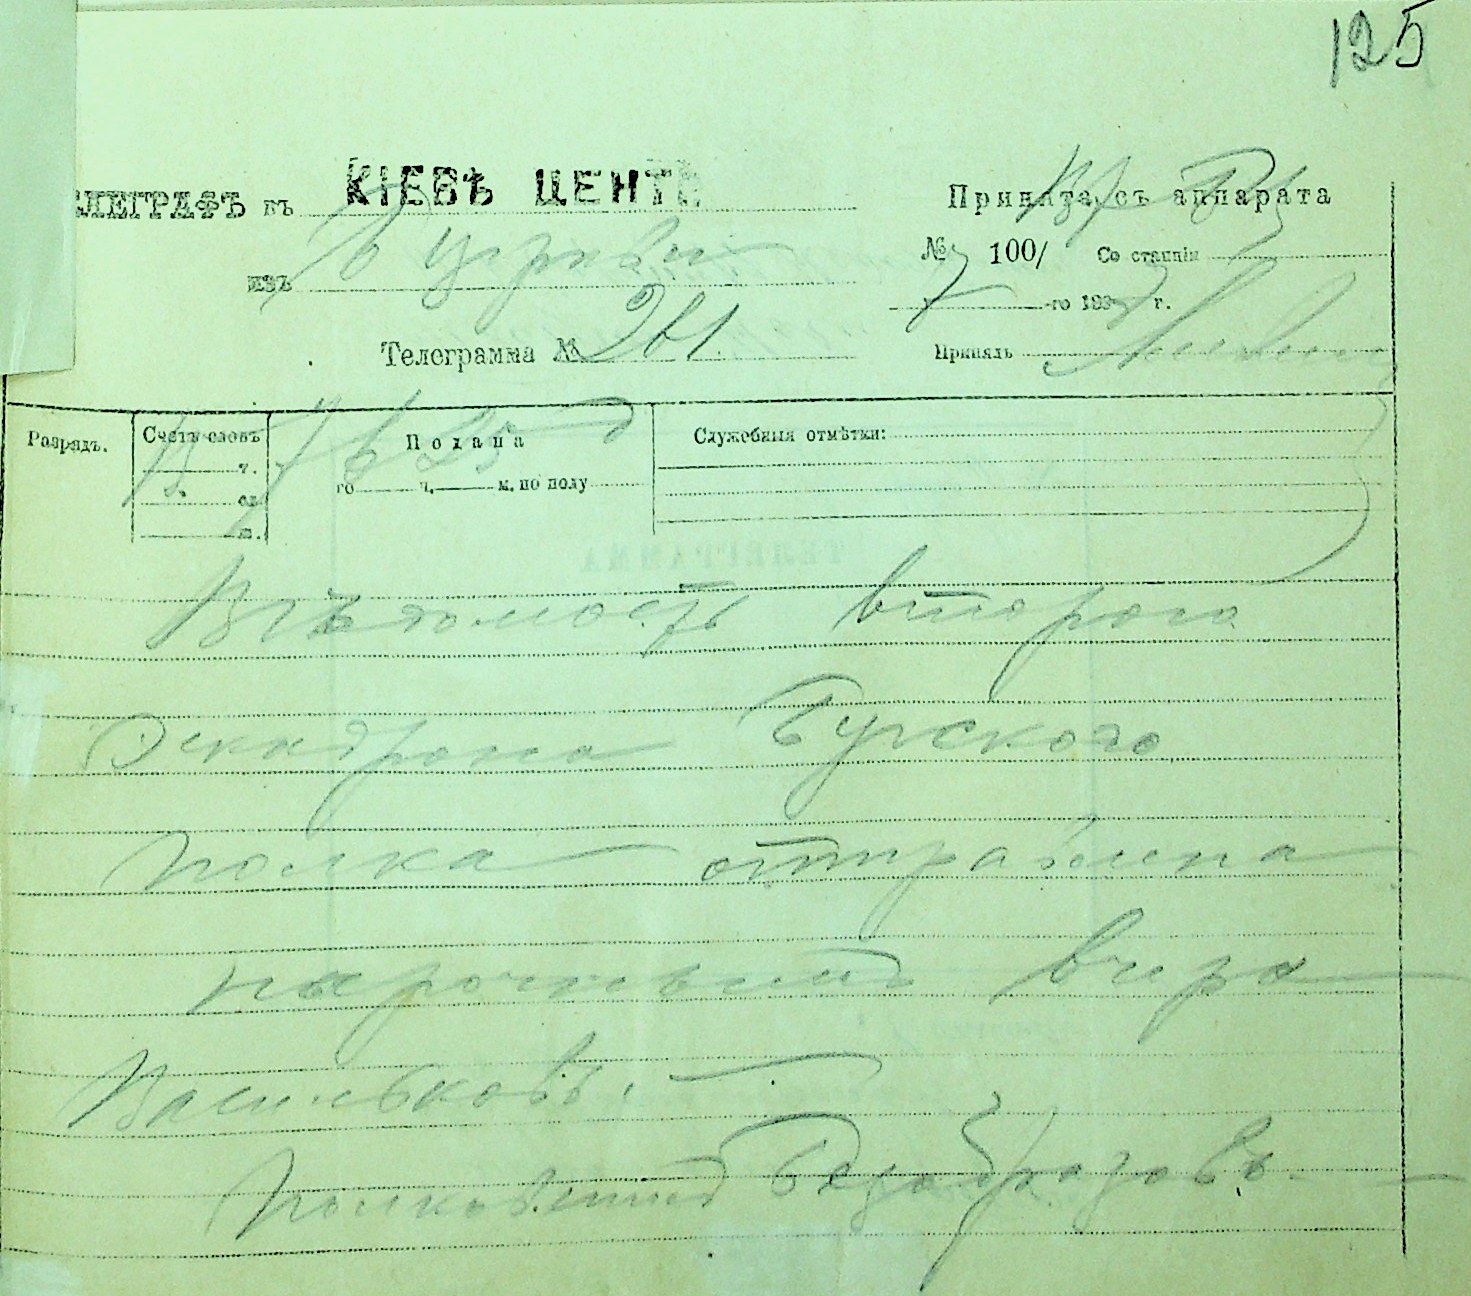 125
ЕЛЕГРАФЪ въ КІЕВЪ ЦЕНТР
Принята съ аппарата
изъ Б Церкви
№ 100/ Со станціи
7 -го 190 г.
Телеграмма № 261.
Принялъ
Разрядъ. Счетъ словъ Подана Служебныя отмѣтки:
ч.
го ч. м. по полу
сл.
Вѣдомость второго
Эскадрона Бугского
полка отправлена
нарочнымъ вчера
Васильковъ.
полковникъ Безобразовъ.